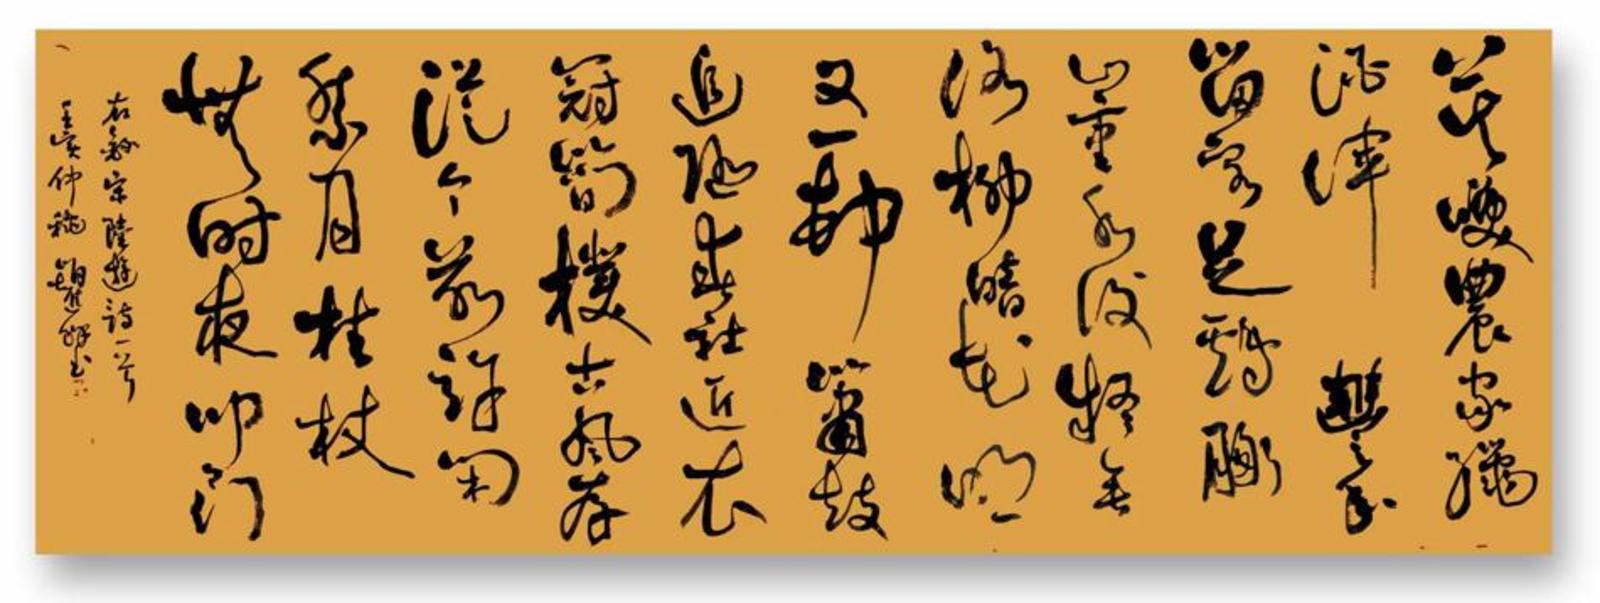 莫笑農家臘
酒渾豐年
留客足鷄豚
山重水複疑無
路柳暗花明
又一村簫鼓
追隨春社近衣
冠簡樸古風存
從今若許閑
乘月拄杖
無時夜叩門
右錄宋陸遊詩一首
壬寅仲秋書